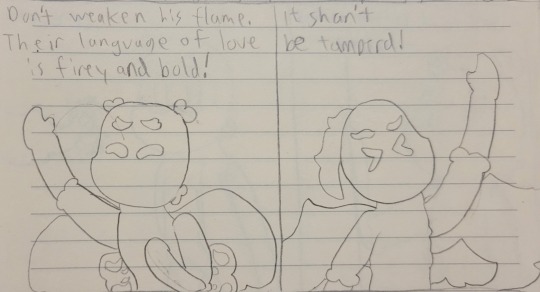 Don't weaken his flame.
Their language of love
is firey and bold!
It shan't
be tamperd!